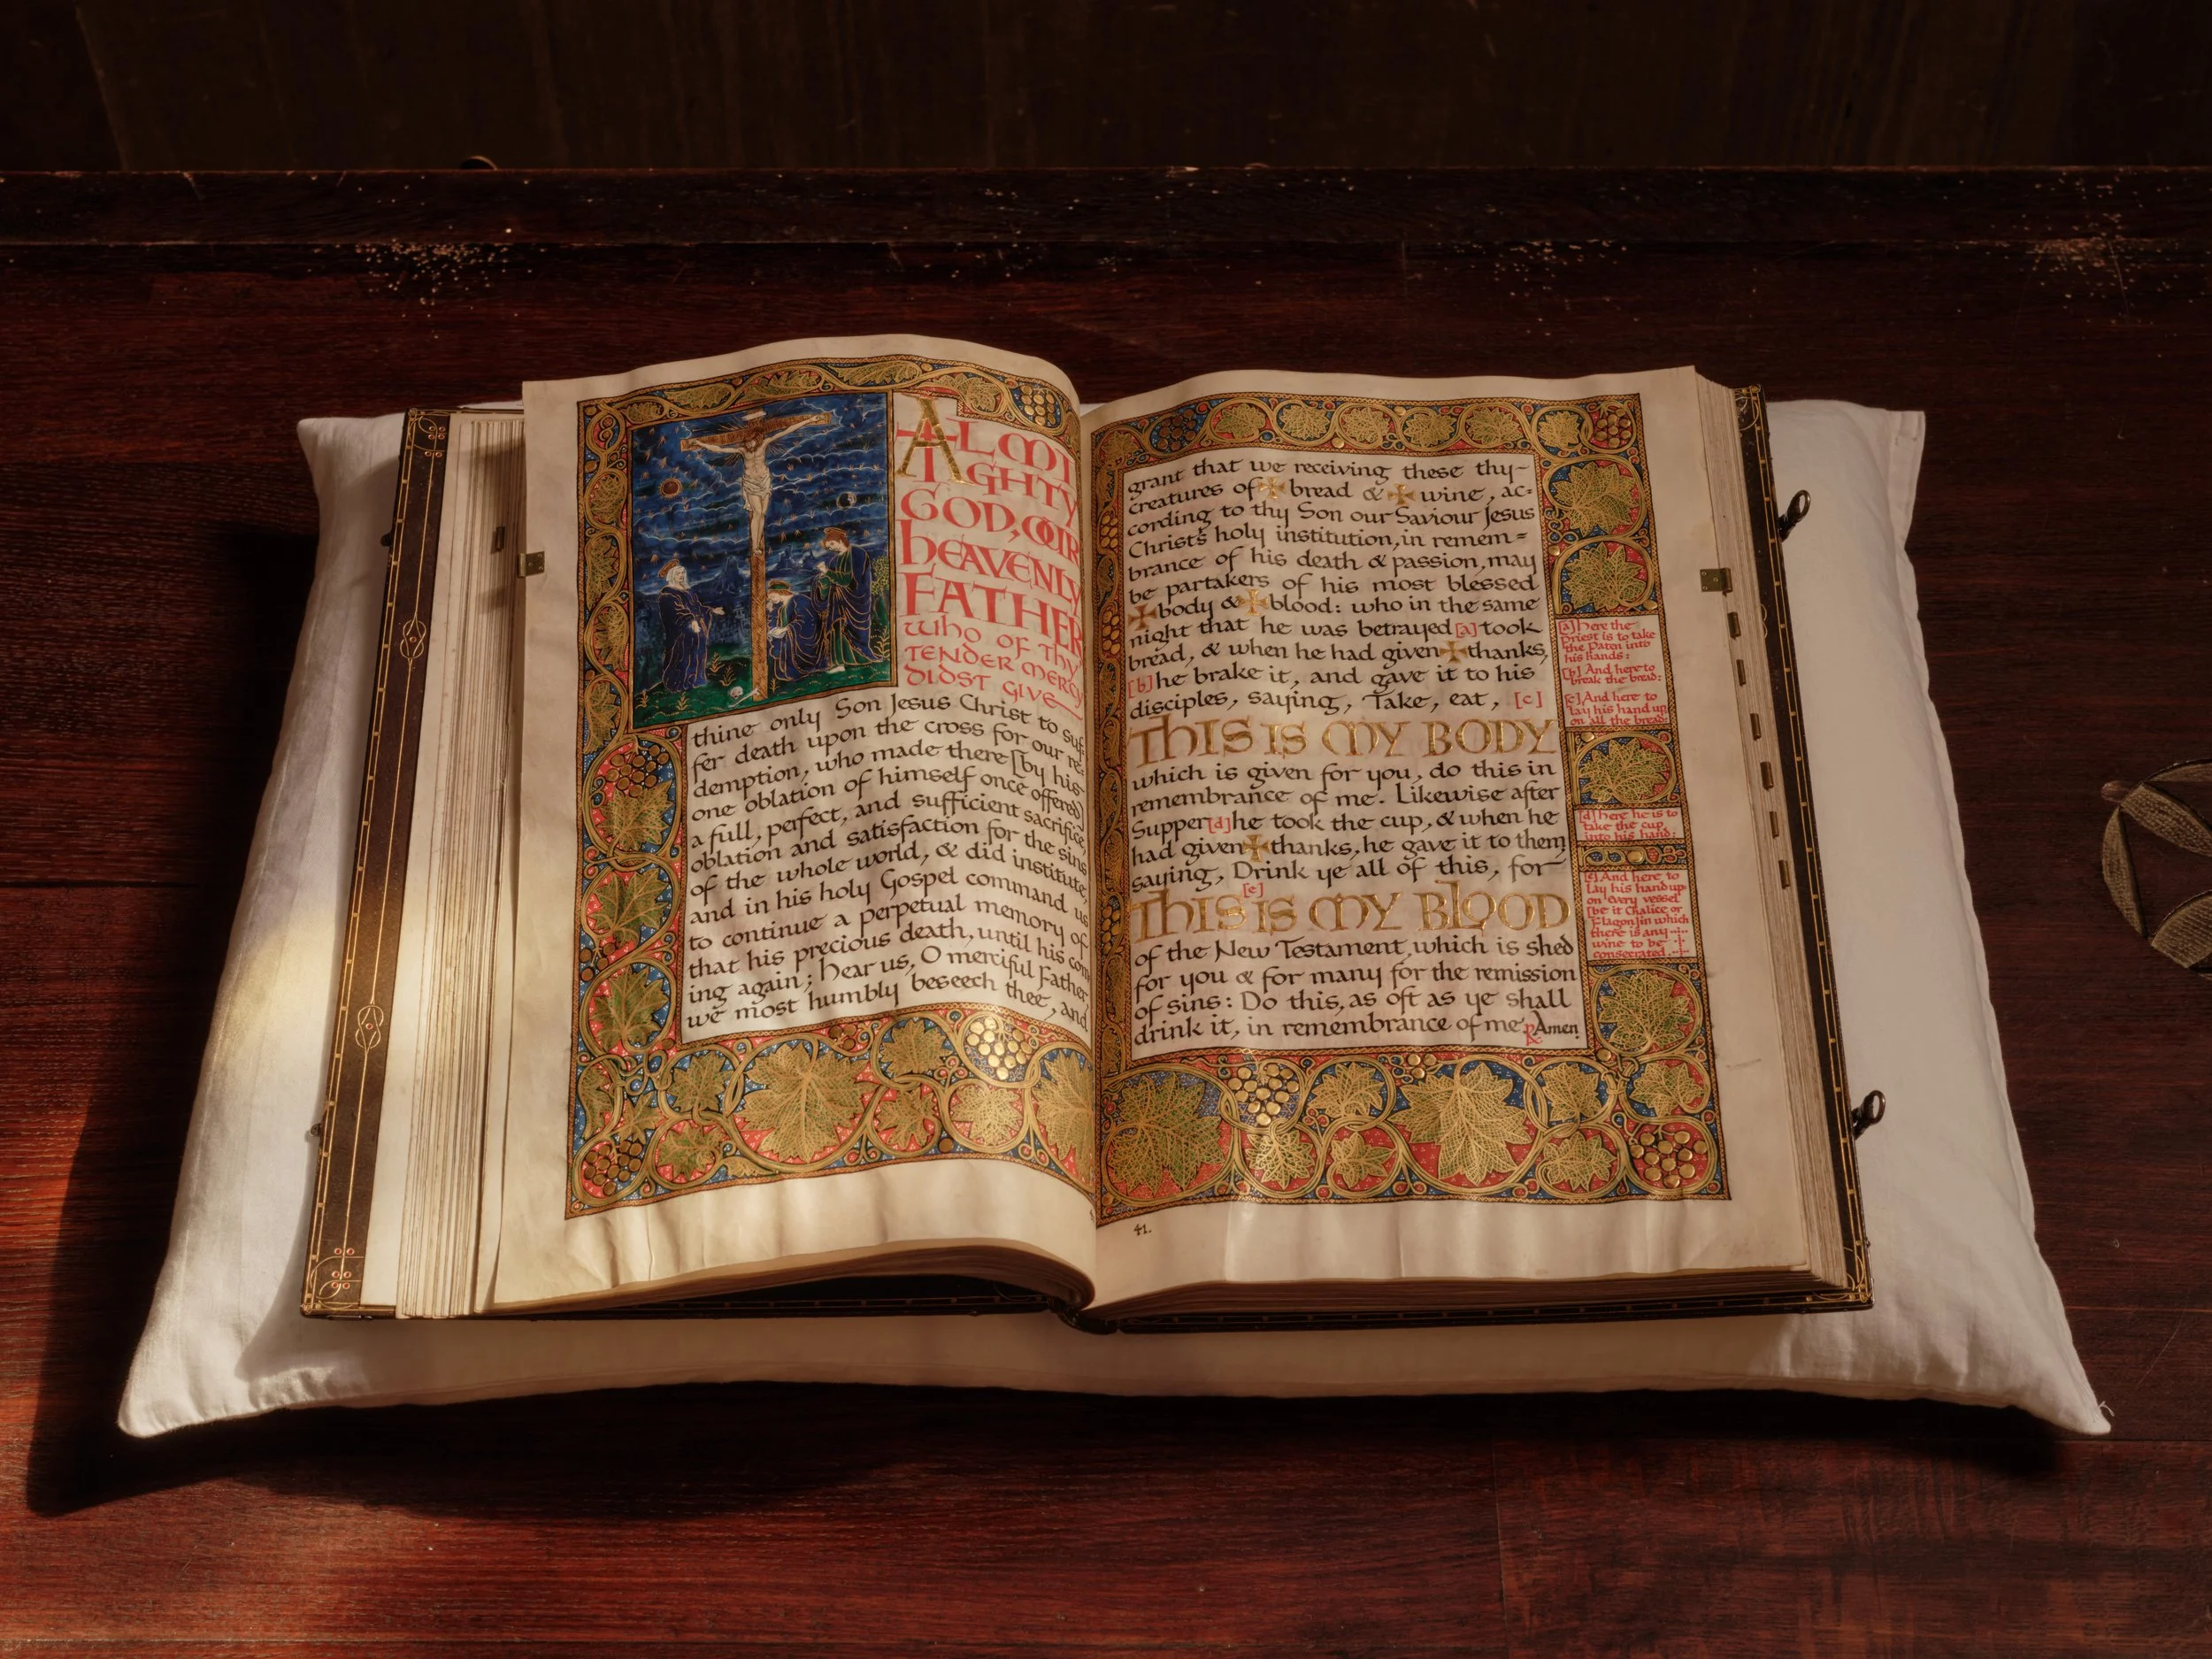 ALMI
GHTY
GOD, OUR
HEAVENLY
FATHER
WHO OF THY
TENDER MERCY
DIDST GIVE
thine only Son Jesus Christ to suf-
fer death upon the cross for our re-
demption, who made there [by his
one oblation of himself once offered]
a full, perfect, and sufficient sacrifice,
oblation and satisfaction for the sins
of the whole world, & did institute,
and in his holy Gospel command us
to continue a perpetual memory of
that his precious death, until his com
ing again; hear us, O merciful Father
we most humbly beseech thee, and
grant that we receiving these thy
creatures of ✠ bread & ✠ wine, ac=
cording to thy Son our Saviour Jesus
Christ's holy institution, in remem=
brance of his death & passion, may
be partakers of his most blessed
✠ body & ✠ blood: who in the same
night that he was betrayed [a] took
bread, & when he had given ✠ thanks,
[b] he brake it, and gave it to his
disciples, saying, Take, eat, [c]
THIS IS MY BODY
which is given for you, do this in
remembrance of me. Likewise after
Supper [d] he took the cup, & when he
had given ✠ thanks, he gave it to them
saying, Drink ye all of this, for
[e]
THIS IS MY BLOOD
of the New Testament, which is shed
for you & for many for the remission
of sins: Do this, as oft as ye shall
drink it, in remembrance of me. ℟ Amen
[a] Here the
Priest is to take
the Paten into
his hands:
[b] And here to
break the bread:
[c] And here to
lay his hand up
on all the bread:
[d] Here he is to
take the cup
into his hand:
[e] And here to
lay his hand up-
on every vessel
[be it Chalice or
Flagon] in which
there is any
wine to be
consecrated.
41.